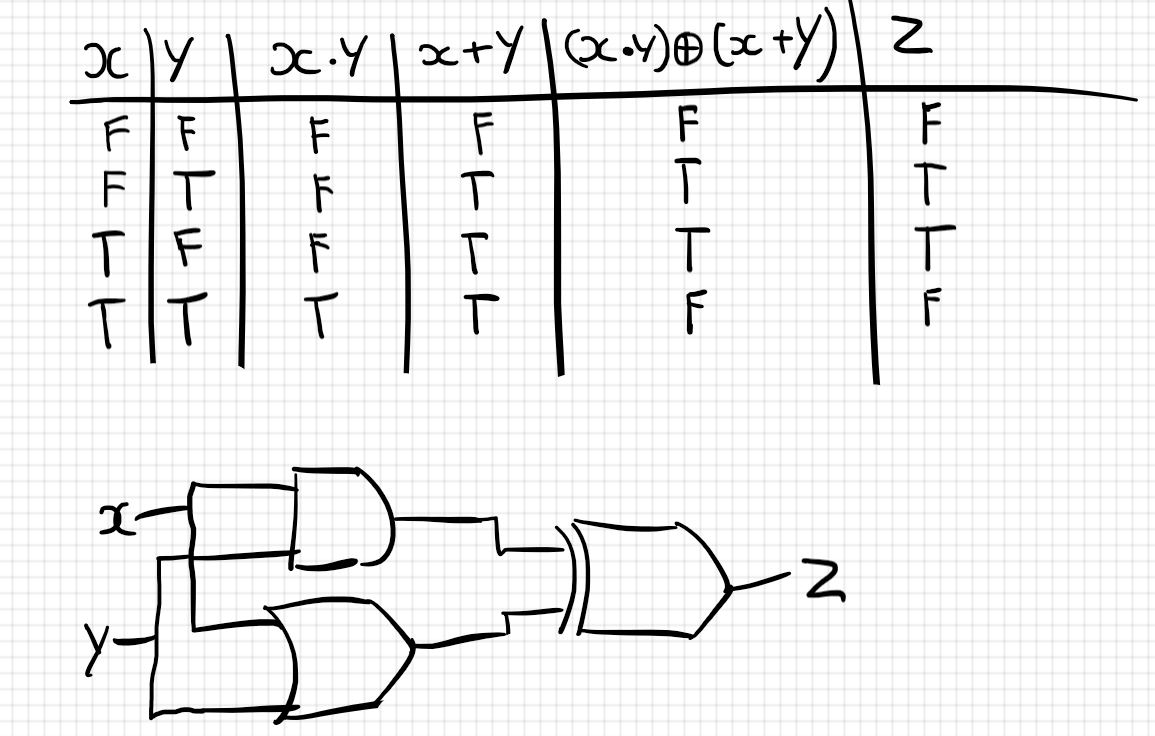 x Y x·Y x+Y (x·Y)⊕(x+Y) Z
F F F F F F
F T F T T T
T F F T T T
T T T T F F
x
Z
Y